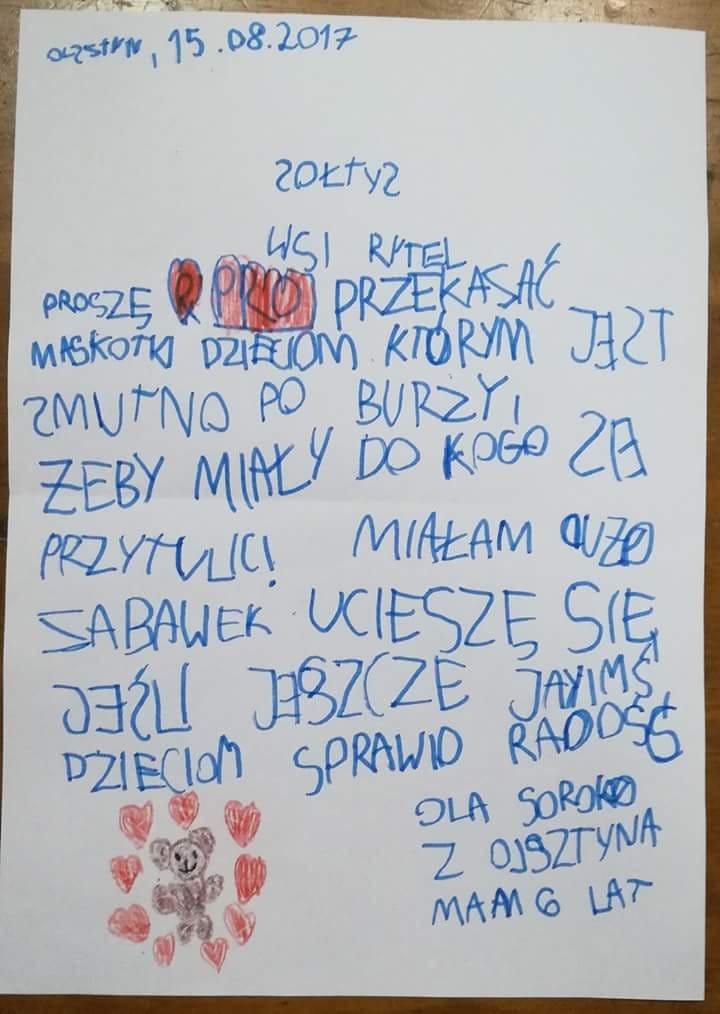 OLSZTYN, 15.08.2017
SOŁTYS
WSI RYTEL
PROSZĘ R PRO PRZEKASAĆ
MASKOTKI DZIECIOM KTÓRYM JEST
SMUTNO PO BURZY,
ŻEBY MIAŁY DO KOGO SIĘ
PRZYTULIĆ! MIAŁAM DUŻO
SABAWEK UCIESZĘ SIĘ
JEŚLI JESZCZE JAKIMŚ
DZIECIOM SPRAWIO RADOŚĆ
OLA SOROKO
Z OLSZTYNA
MAM 6 LAT